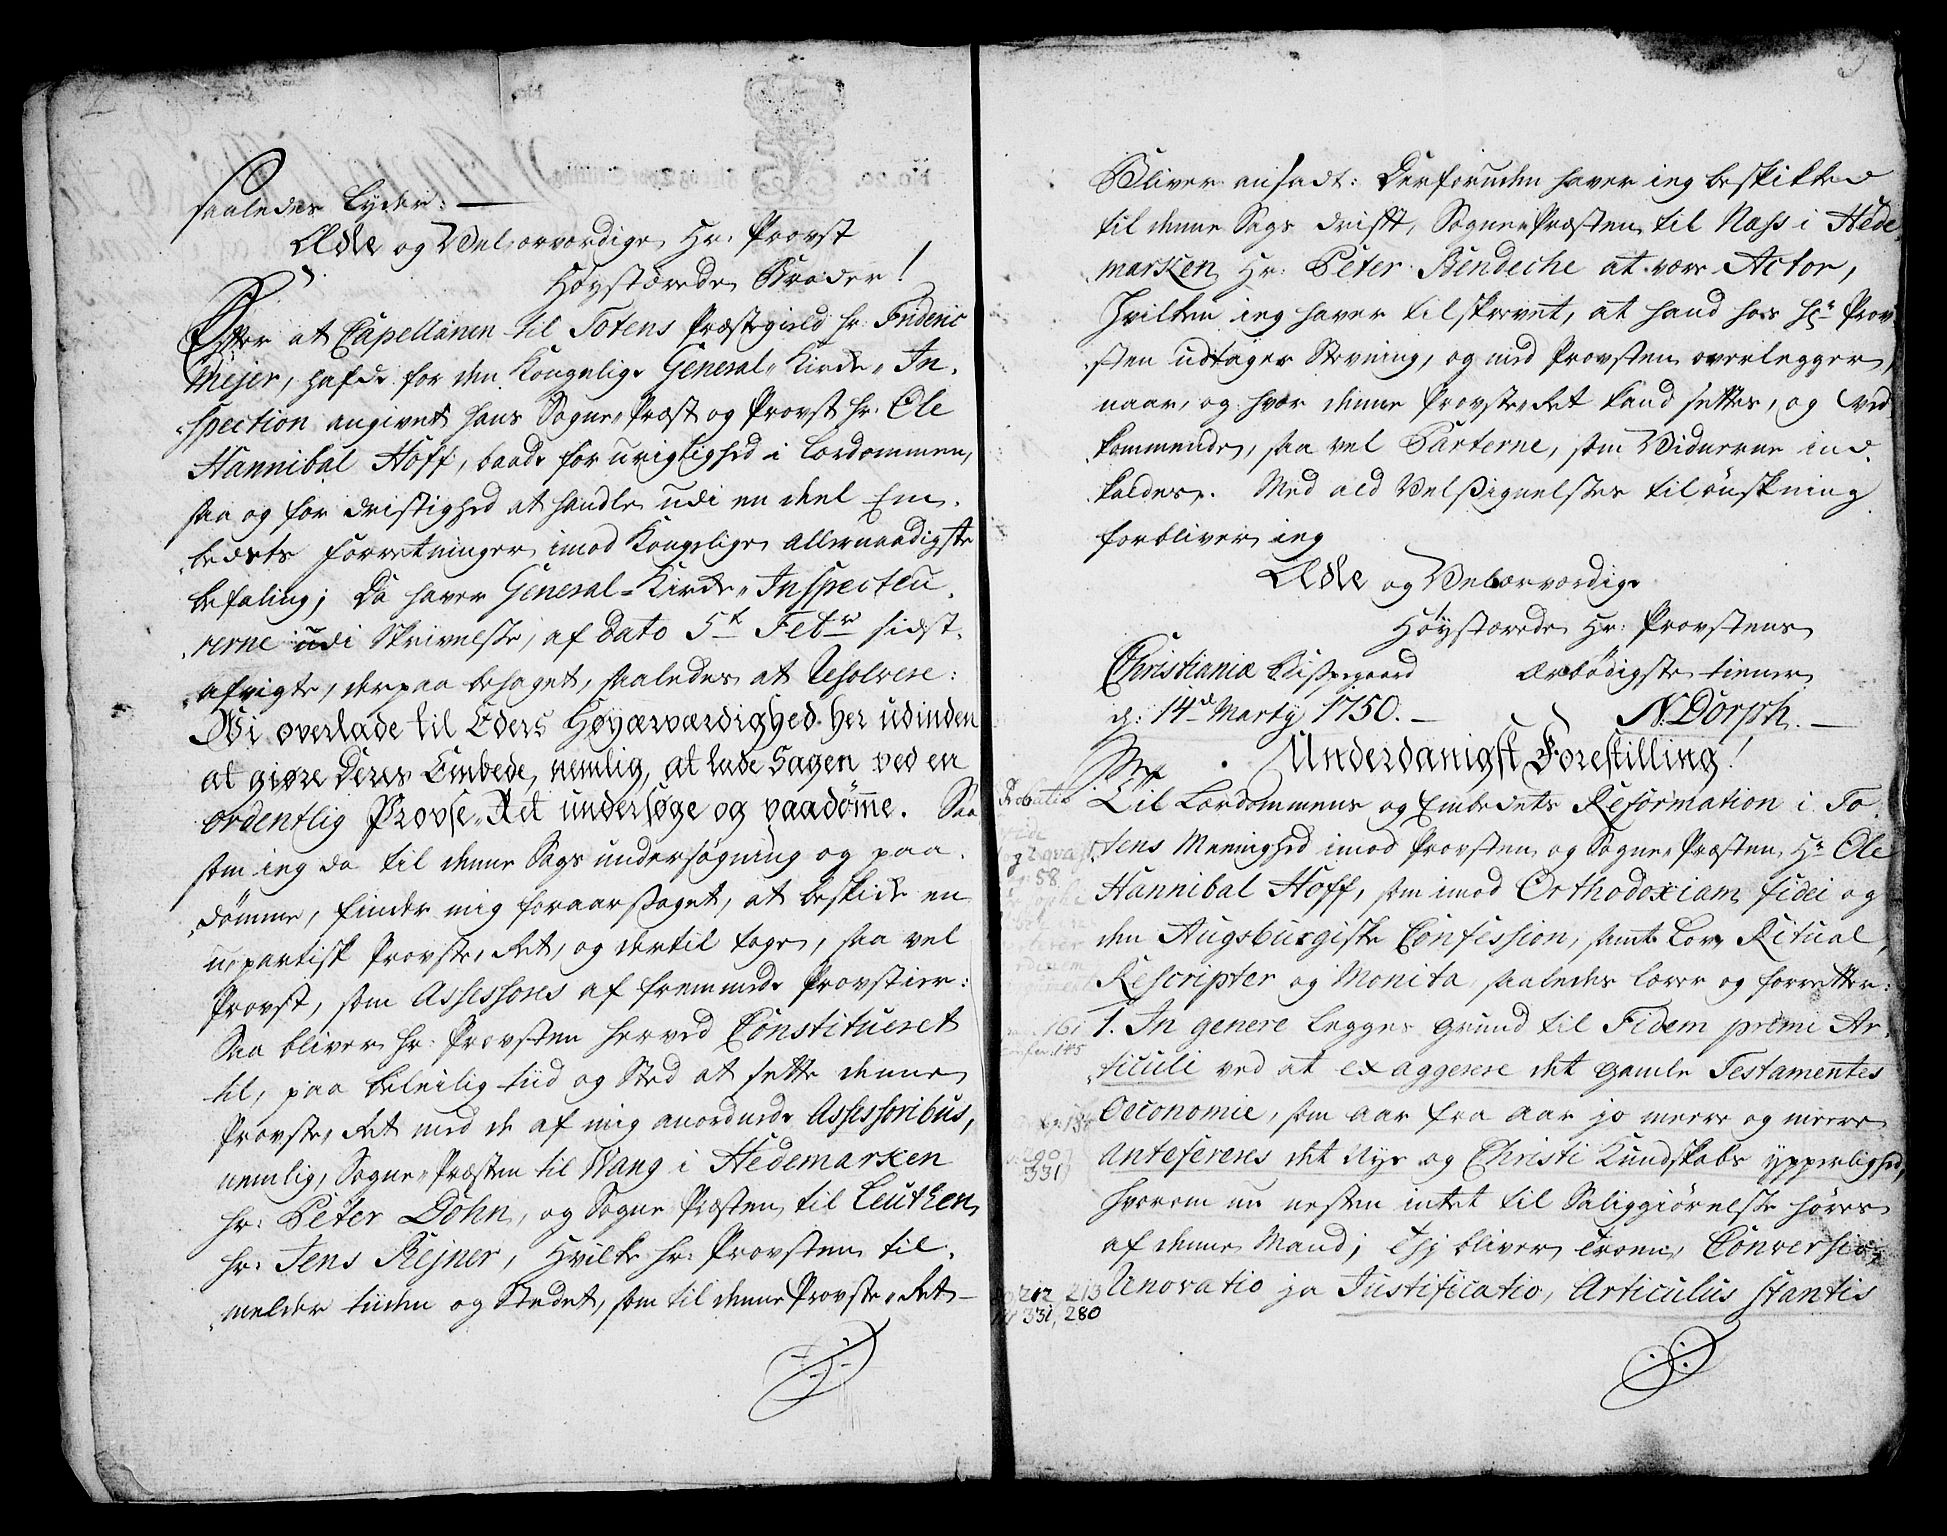 saaledes lyder: —
Ædle og Velærværdige Hr. Provst
Høystærede Broder!
Efter at Capellanen til Totens Præstegield hr. Frideric
Mejer, hafde for den Kongelige General-Kirke-In-
spection angivet hans Sogne-Præst og Provst hr. Ole
Hannibal Hoff, baade for urigtighed i Lærdommen,
saa og for dristighed at handle udi en deel Em-
bedets forretninger imod Kongelige allernaadigste
befaling; Da haver General-Kirke-Inspecteu-
rerne udi Skrivelse, af Dato 5t Febr sidst-
afvigte, derpaa behaget, saaledes at Resolvere:
Wi overlade til Eders Høyærværdighed her udinden
at giøre Deres Embede, nemlig, at lade Sagen ved en
ordentlig Provste-Ret undersøge og paadømme. Saa
som ieg da til denne Sags undersøgning og paa-
dømme, finder mig foraarsaget, at beskikke en
u-partisk Provste-Ret, og dertil tage, saa vel
Provst, som Assessores af fremmede Provstier:
Saa bliver hr. Provsten herved Constitueret
til, paa beleilig tiid og Sted at sette denne
Provste-Ret med de af mig anordnede Assessoribus,
nemlig, Sogne-Præsten til Wang i Hedemarken
hr: Peter Dohn, og Sogne Præsten til Leuthen,
hr: Jens Rejner, Hvilke hr: Provsten til-
melder tiiden og Stedet, som til denne Provste-Ret
Bliver ansadt: Desforuden haver ieg beskikked
til denne Sags drift, Sogne-Præsten til Næss i Hede-
marken Hr: Peter Bendeche at være Actor,
Hvilken ieg haver tilskrevet, at hand hos Hr Prov-
sten udtager Stevning, og med Provsten overlegger,
naar, og hvor denne Provste-Ret kand settes, og Ved-
kommende, saa vel Parterne, som Vidnerne ind-
kaldes. Med ald Velsignelses tilønskning
forbliver ieg
Ædle og Velærværdige
Høystærede Hr: Provstens
Christianiæ Bispegaard ærbødigste tiener
d: 14d Martij 1750. — N. Dorph. —
Underdanigst Forestilling!
Til Lærdommens og Embedets Reformation i To-
tens Meenighed imod Provsten og Sogne-Præsten Hr Ole
Hannibal Hoff, som imod Orthodoxiam fidei og
den Augsburgiske Confession, samt Lov, Ritual,
Rescripter og Monita saaledes lærer og forretter:
1. In genere legges grund til Fidem primi Ar-
ticuli ved at exaggerere det gamle Testamentes
Oeconomie, som aar fra aar jo meere og meere
anteferes det Nye og Christi Kundskabs ypperlighed,
hvorom nu nesten intet til Saliggiørelse høres
af denne Mand; Thj bliver troen, Conversio,
Renovatio ja Justificatio, Articulus stantis
58
161
145
290
331
212 213
331, 280